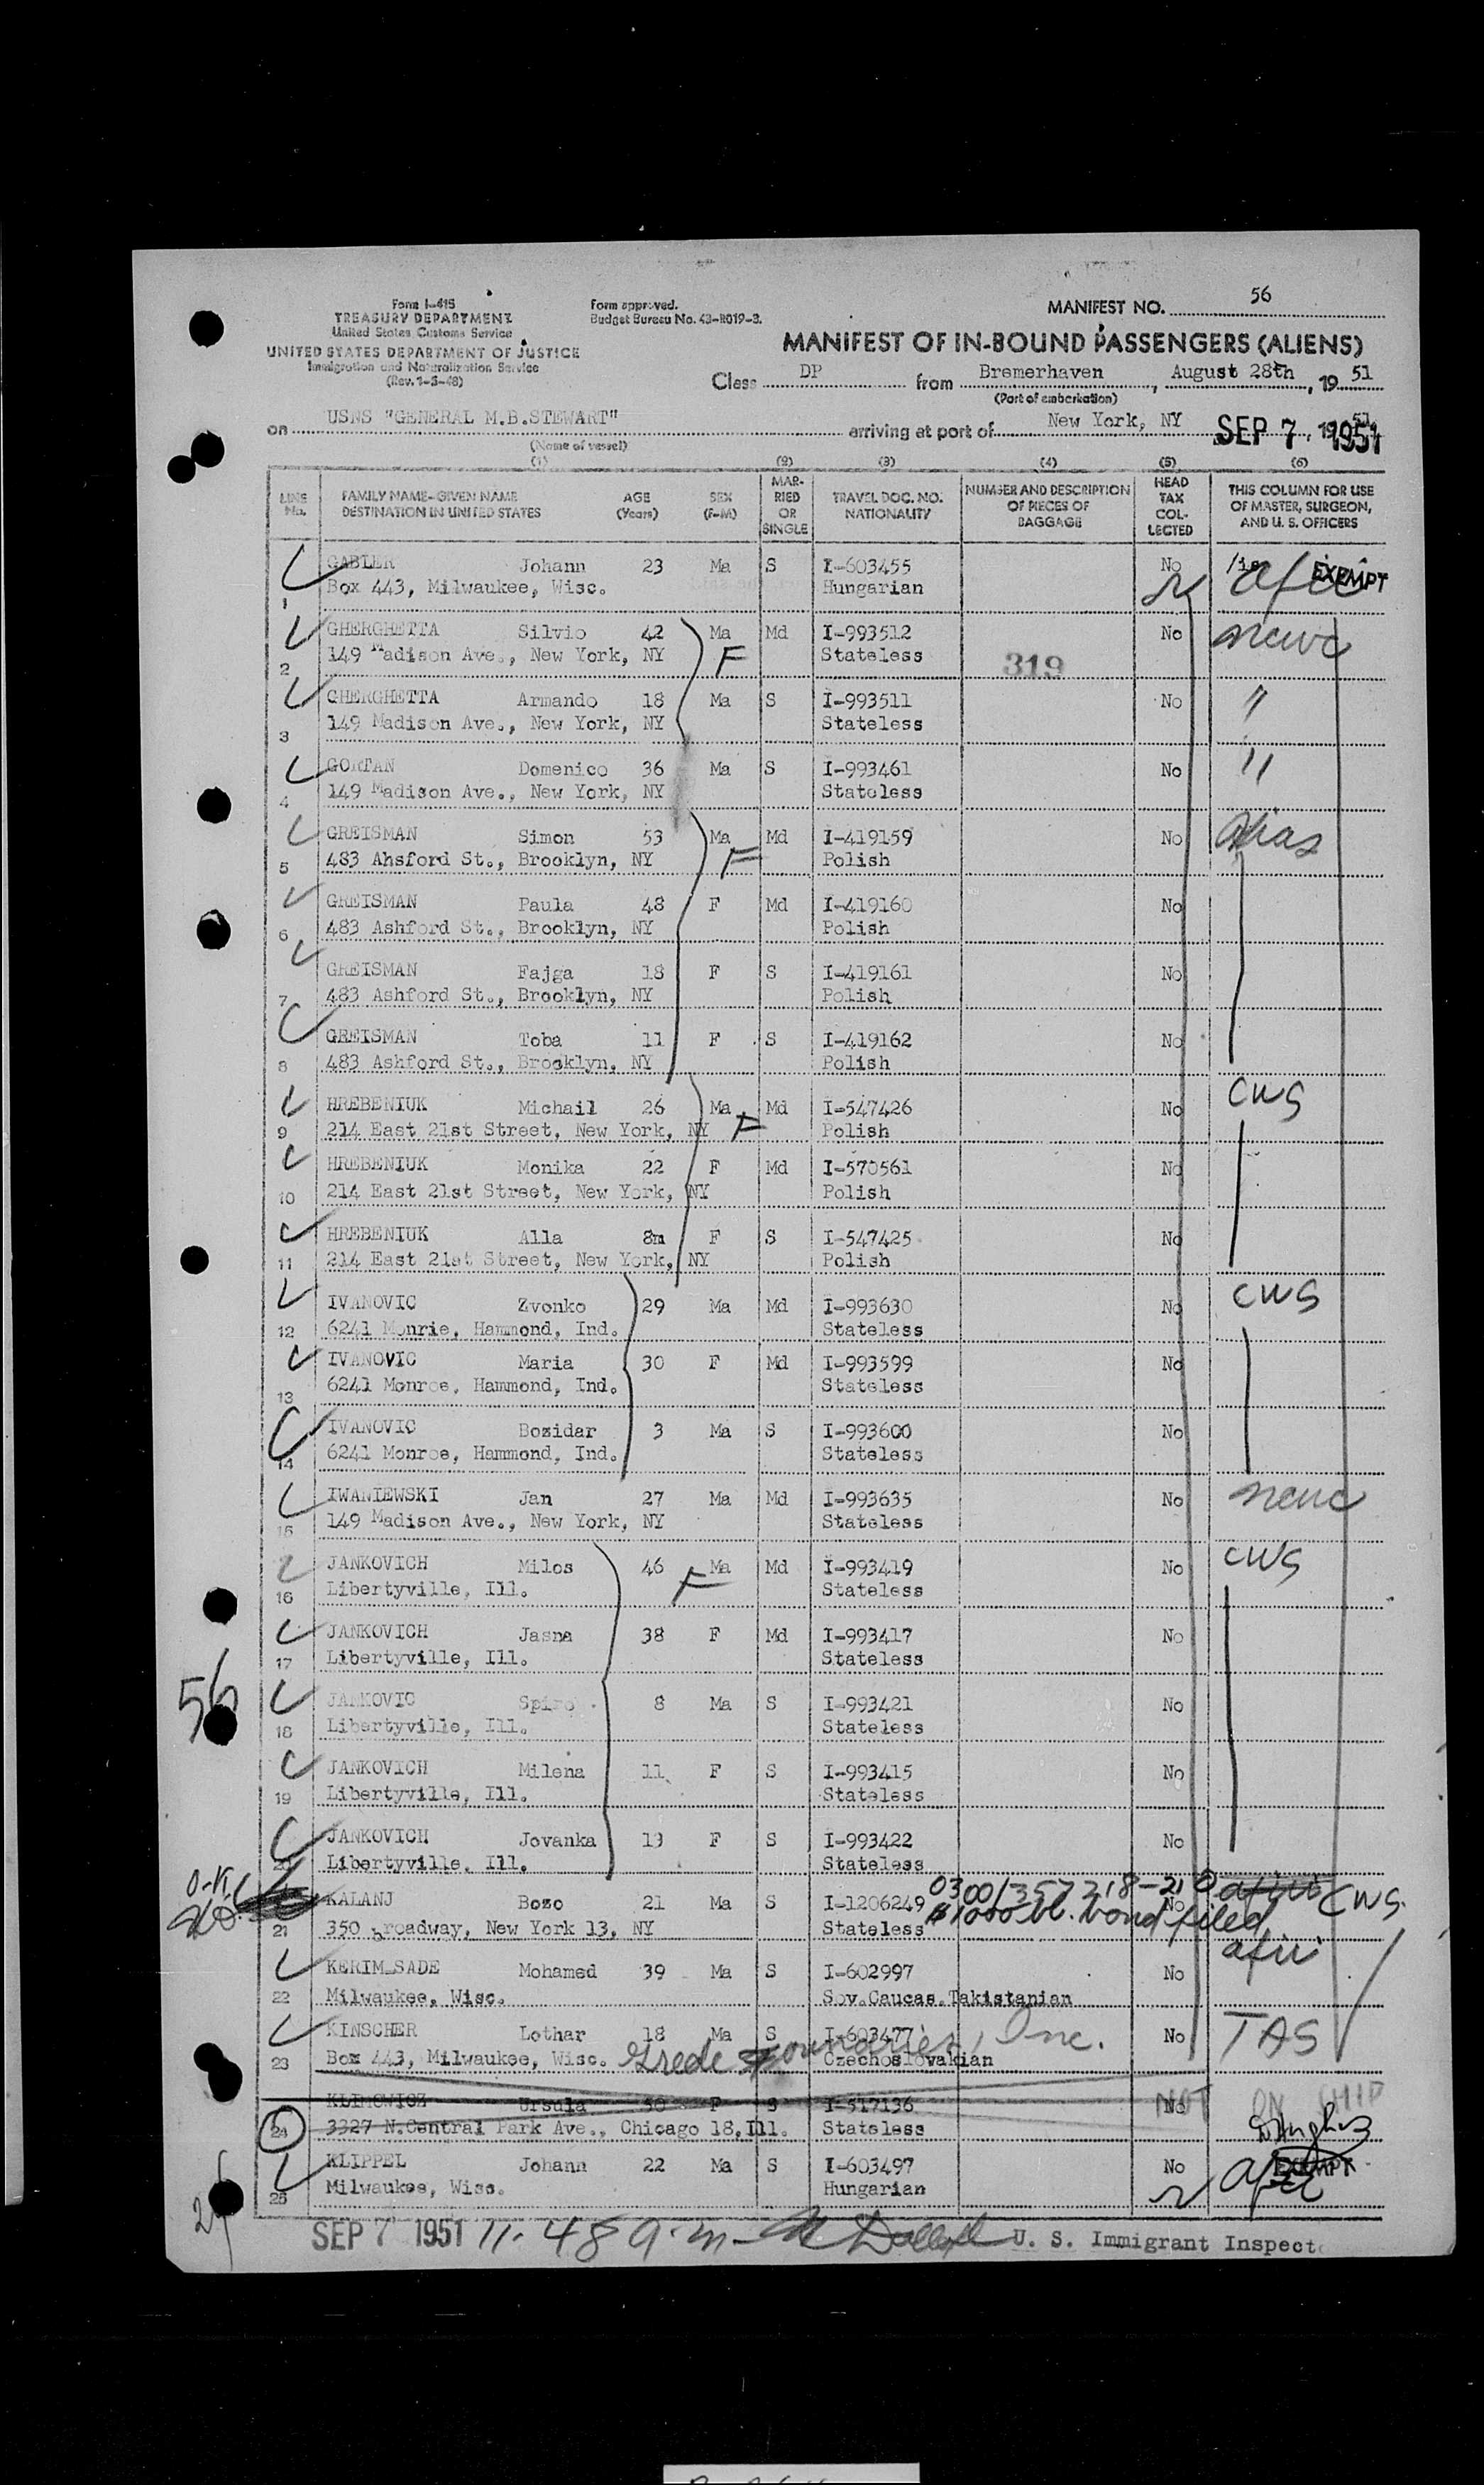 56
Form I-415
TREASURY DEPARTMENT
United States Customs Service
UNITED STATES DEPARTMENT OF JUSTICE
Immigration and Naturalization Service
(Rev. 1-3-48)
Form approved.
Budget Bureau No. 43-R019-3.
MANIFEST NO. 56
MANIFEST OF IN-BOUND PASSENGERS (ALIENS)
Class DP from Bremerhaven, August 28th, 19 51
(Port of embarkation)
on USNS "GENERAL M.B.STEWART" arriving at port of New York, NY SEP 7 1951
(Name of vessel)
(1) (2) (3) (4) (5) (6)
LINE No. FAMILY NAME-GIVEN NAME DESTINATION IN UNITED STATES AGE (Years) SEX (F-M) MARRIED OR SINGLE TRAVEL DOC. NO. NATIONALITY NUMBER AND DESCRIPTION OF PIECES OF BAGGAGE HEAD TAX COLLECTED THIS COLUMN FOR USE OF MASTER, SURGEON, AND U. S. OFFICERS
GABLER Johann 23 Ma S I-603455 No EXEMPT
1 Box 443, Milwaukee, Wisc. Hungarian
GHERGHETTA Silvio 42 Ma Md I-993512 No
2 149 Madison Ave., New York, NY F Stateless 319
GHERGHETTA Armando 18 Ma S I-993511 No "
3 149 Madison Ave., New York, NY Stateless
GORTAN Domenico 36 Ma S I-993461 No "
4 149 Madison Ave., New York, NY Stateless
GREISMAN Simon 53 Ma Md I-419159 No
5 483 Ahsford St., Brooklyn, NY F Polish
GREISMAN Paula 48 F Md I-419160 No
6 483 Ashford St., Brooklyn, NY Polish
GREISMAN Fajga 18 F S I-419161 No
7 483 Ashford St., Brooklyn, NY Polish
GREISMAN Toba 11 F S I-419162 No
8 483 Ashford St., Brooklyn, NY Polish
HREBENIUK Michail 26 Ma Md I-547426 No CWS
9 214 East 21st Street, New York, NY F Polish
HREBENIUK Monika 22 F Md I-570561 No
10 214 East 21st Street, New York, NY Polish
HREBENIUK Alla 8m F S I-547425 No
11 214 East 21st Street, New York, NY Polish
IVANOVIC Zvonko 29 Ma Md I-993630 No CWS
12 6241 Monrie, Hammond, Ind. Stateless
IVANOVIC Maria 30 F Md I-993599 No
13 6241 Monroe, Hammond, Ind. Stateless
IVANOVIC Bozidar 3 Ma S I-993600 No
14 6241 Monroe, Hammond, Ind. Stateless
IWANIEWSKI Jan 27 Ma Md I-993635 No
15 149 Madison Ave., New York, NY Stateless
JANKOVICH Milos 46 F Ma Md I-993419 No CWS
16 Libertyville, Ill. Stateless
JANKOVICH Jasna 38 F Md I-993417 No
17 Libertyville, Ill. Stateless
56
JANKOVIC Spiro 8 Ma S I-993421 No
18 Libertyville, Ill. Stateless
JANKOVICH Milena 11 F S I-993415 No
19 Libertyville, Ill. Stateless
JANKOVICH Jovanka 13 F S I-993422 No
20 Libertyville, Ill. Stateless
KALANJ Bozo 21 Ma S I-1206249 No CWS.
21 350 Broadway, New York 13, NY Stateless bond filed
KERIM SADE Mohamed 39 Ma S I-602997 No
22 Milwaukee, Wisc. Sov.Caucas.Takistanian
KINSCHER Lothar 18 Ma S I-603477 No TAS
23 Box 443, Milwaukee, Wisc. Grede Foundries, Inc. Czechoslovakian
KLIMOWICZ Ursula 30 F S I-517136 No NOT ON SHIP
24 3327 N.Central Park Ave., Chicago 18, Ill. Stateless
KLIPPEL Johann 22 Ma S I-603497 No EXEMPT
25 Milwaukee, Wisc. Hungarian
SEP 7 1951 11.48 a.m. U. S. Immigrant Inspect